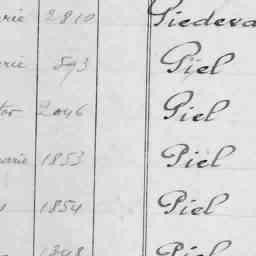 2810 Piedeva
893 Piel
2046 Piel
1853 Piel
1854 Piel
1348 Piel